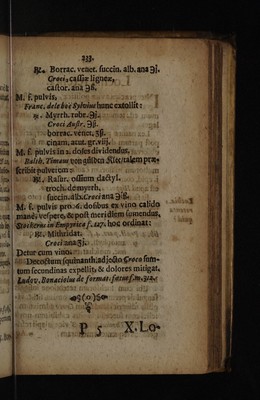 233.
℞. Borrac. venet. succin. alb. ana ℈j.
Croci, cassiæ ligneæ,
castor. ana ℈ß.
M. f. pulvis,
Franc. dele boë Sylvius hunc extollit:
℞. Myrrh. rubr. ℈j.
Croci Austr. ℈ß.
borrac. venet. ʒß.
cinam. acut. gr. viij.
M. f. pulvis in 2. doses dividendus.
Balth. Timæus von talem præ-
scribit pulverem:
℞. Rasur. ossium dactyl.
troch. de myrrh.
succin. alb. Croci ana ℈iß.
M. f. pulvis pro. 6. dosibus ex vino calido
mane, vespere, & post meridiem sumendus,
Stockerus in Empyrica f. 227. hoc ordinat:
℞. Mithridat.
Croci ana ʒj.
Detur cum vino.
Decoctum squinanth. adjecto Croco sum-
tum secundinas expellit, & dolores mitigat,
Ludov. Bonaciolus de format. fœtus f. m. 312.
P 5 X. Lo-